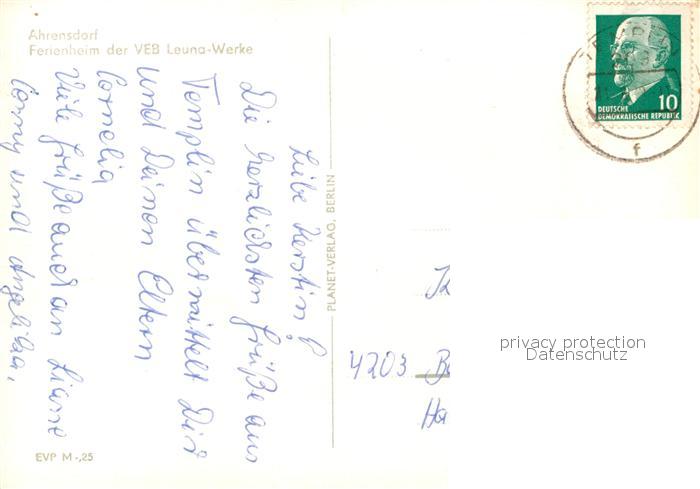 Ahrensdorf
Ferienheim der VEB Leuna-Werke
Liebe Kerstin!
Die herzlichsten Grüße aus
Templin übermittelt Dir
und Deinen Eltern
Cornelia
Viele Grüße auch an Liane
Conny und Angelika.
EVP M -,25
PLANET-VERLAG, BERLIN
10
DEUTSCHE
DEMOKRATISCHE REPUBLIK
TEMPLIN
f
4203
privacy protection
Datenschutz